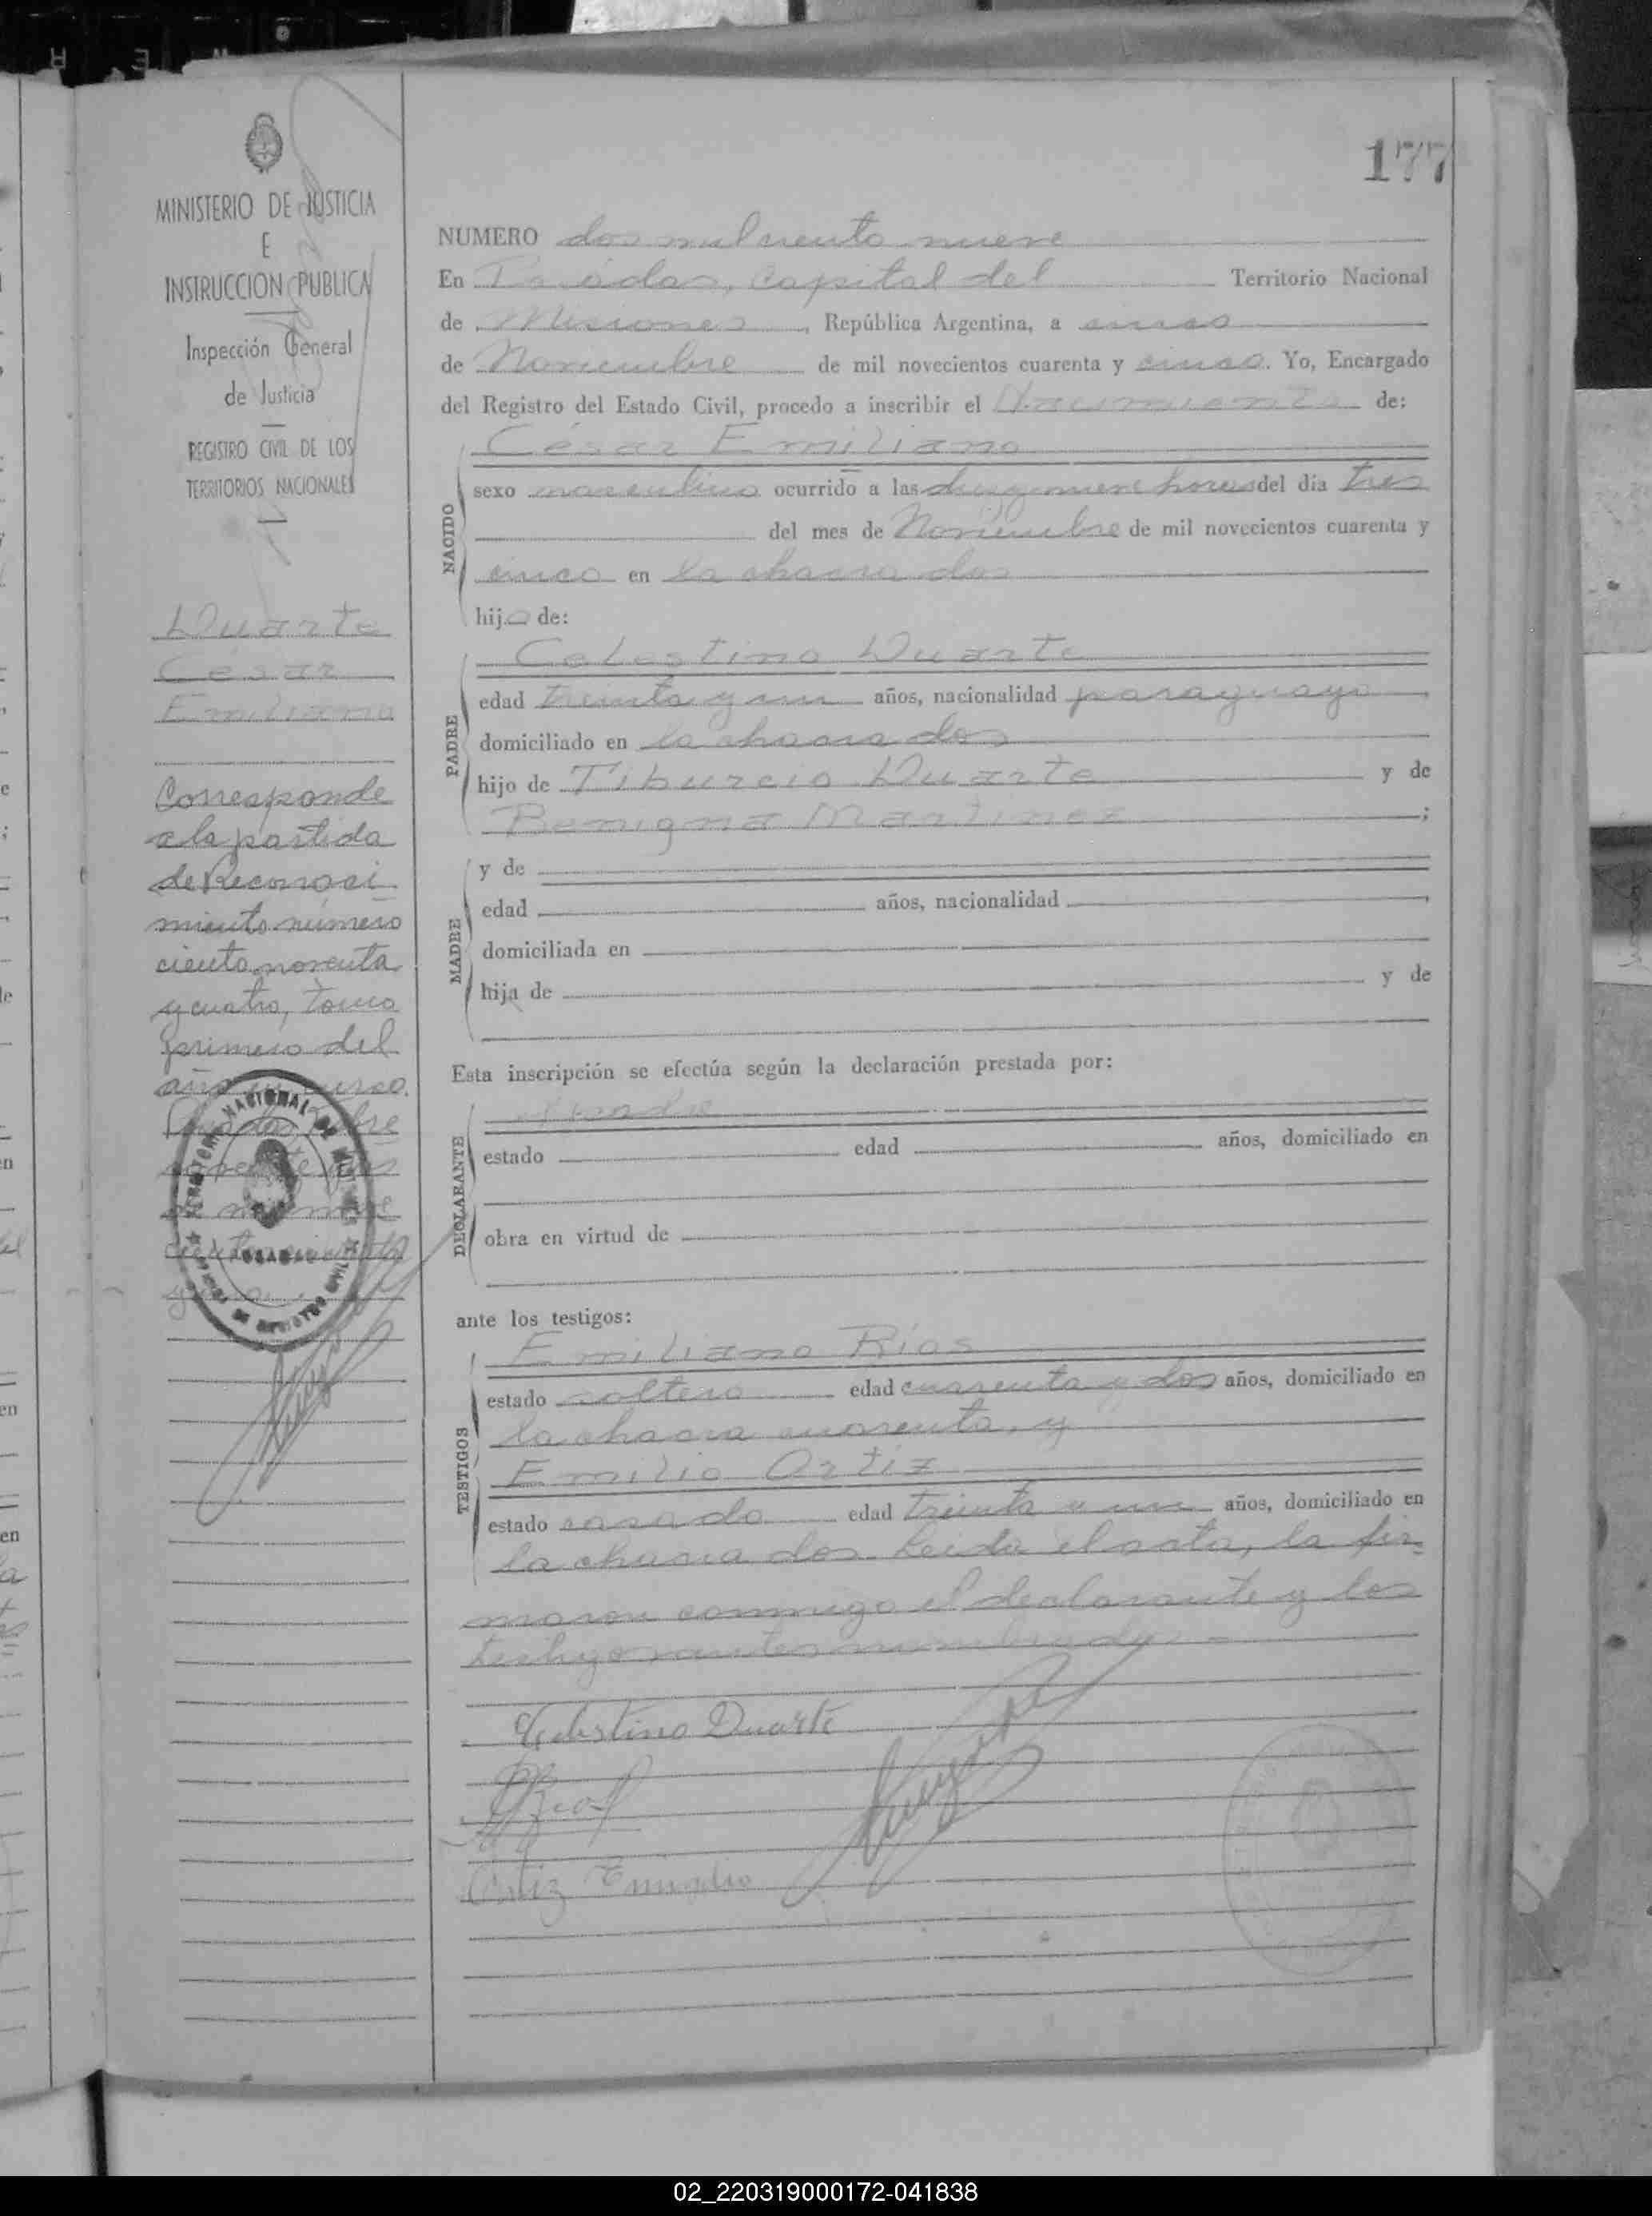 177
MINISTERIO DE JUSTICIA
E
INSTRUCCION PUBLICA
Inspección General
de Justicia
REGISTRO CIVIL DE LOS
TERRITORIOS NACIONALES
Duarte
César
Emiliano
Corresponde
a la partida
de Reconoci
miento número
ciento noventa
y cuatro, tomo
primero del
año en curso.
NUMERO dos mil ciento nueve
En Posadas, Capital del Territorio Nacional
de Misiones, República Argentina, a cinco
de Noviembre de mil novecientos cuarenta y cinco. Yo, Encargado
del Registro del Estado Civil, procedo a inscribir el Nacimiento de:
NACIDO
César Emiliano
sexo masculino ocurrido a las diez y nueve horas del día tres
del mes de Noviembre de mil novecientos cuarenta y
cinco en la chacra dos
hijo de:
PADRE
Celestino Duarte
edad treinta y un años, nacionalidad paraguayo
domiciliado en la chacra dos
hijo de Tiburcio Duarte y de
Benigna Martinez ;
MADRE
y de
edad años, nacionalidad
domiciliada en
hija de y de
Esta inscripción se efectúa según la declaración prestada por:
DECLARANTE
estado edad años, domiciliado en
obra en virtud de
ante los testigos:
TESTIGOS
Emiliano Ríos
estado soltero edad cuarenta y dos años, domiciliado en
la chacra cuarenta, y
Emilio Ortiz
estado casado edad treinta y un años, domiciliado en
la chacra dos. Leida el acta, la fir-
maron conmigo el declarante y los
testigos antes nombrados.-
Celestino Duarte
Ortiz Emilio
02_220319000172-041838